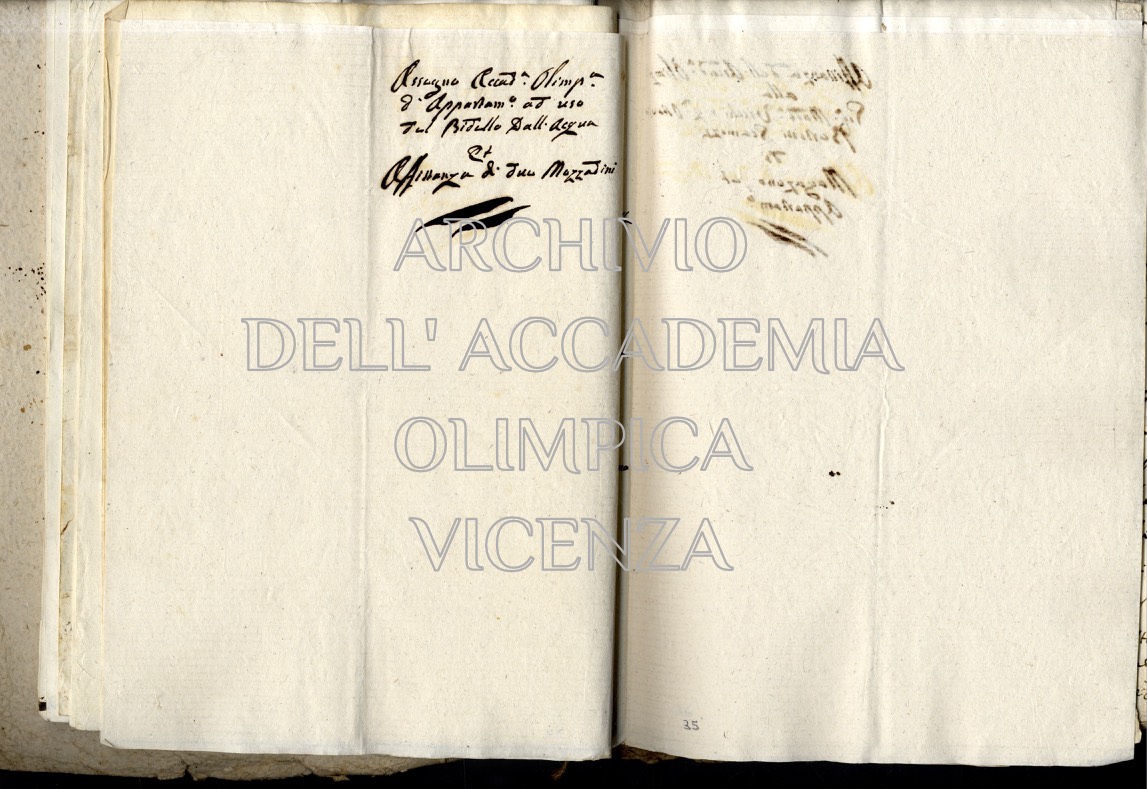 Assegna Accad.ª Olimp.ª
d'Appartam.º ad uso
del Bidello Dall'Acqua
Et
Affittanza di due Mezzadini
ARCHIVIO
DELL' ACCADEMIA
OLIMPICA
VICENZA
35